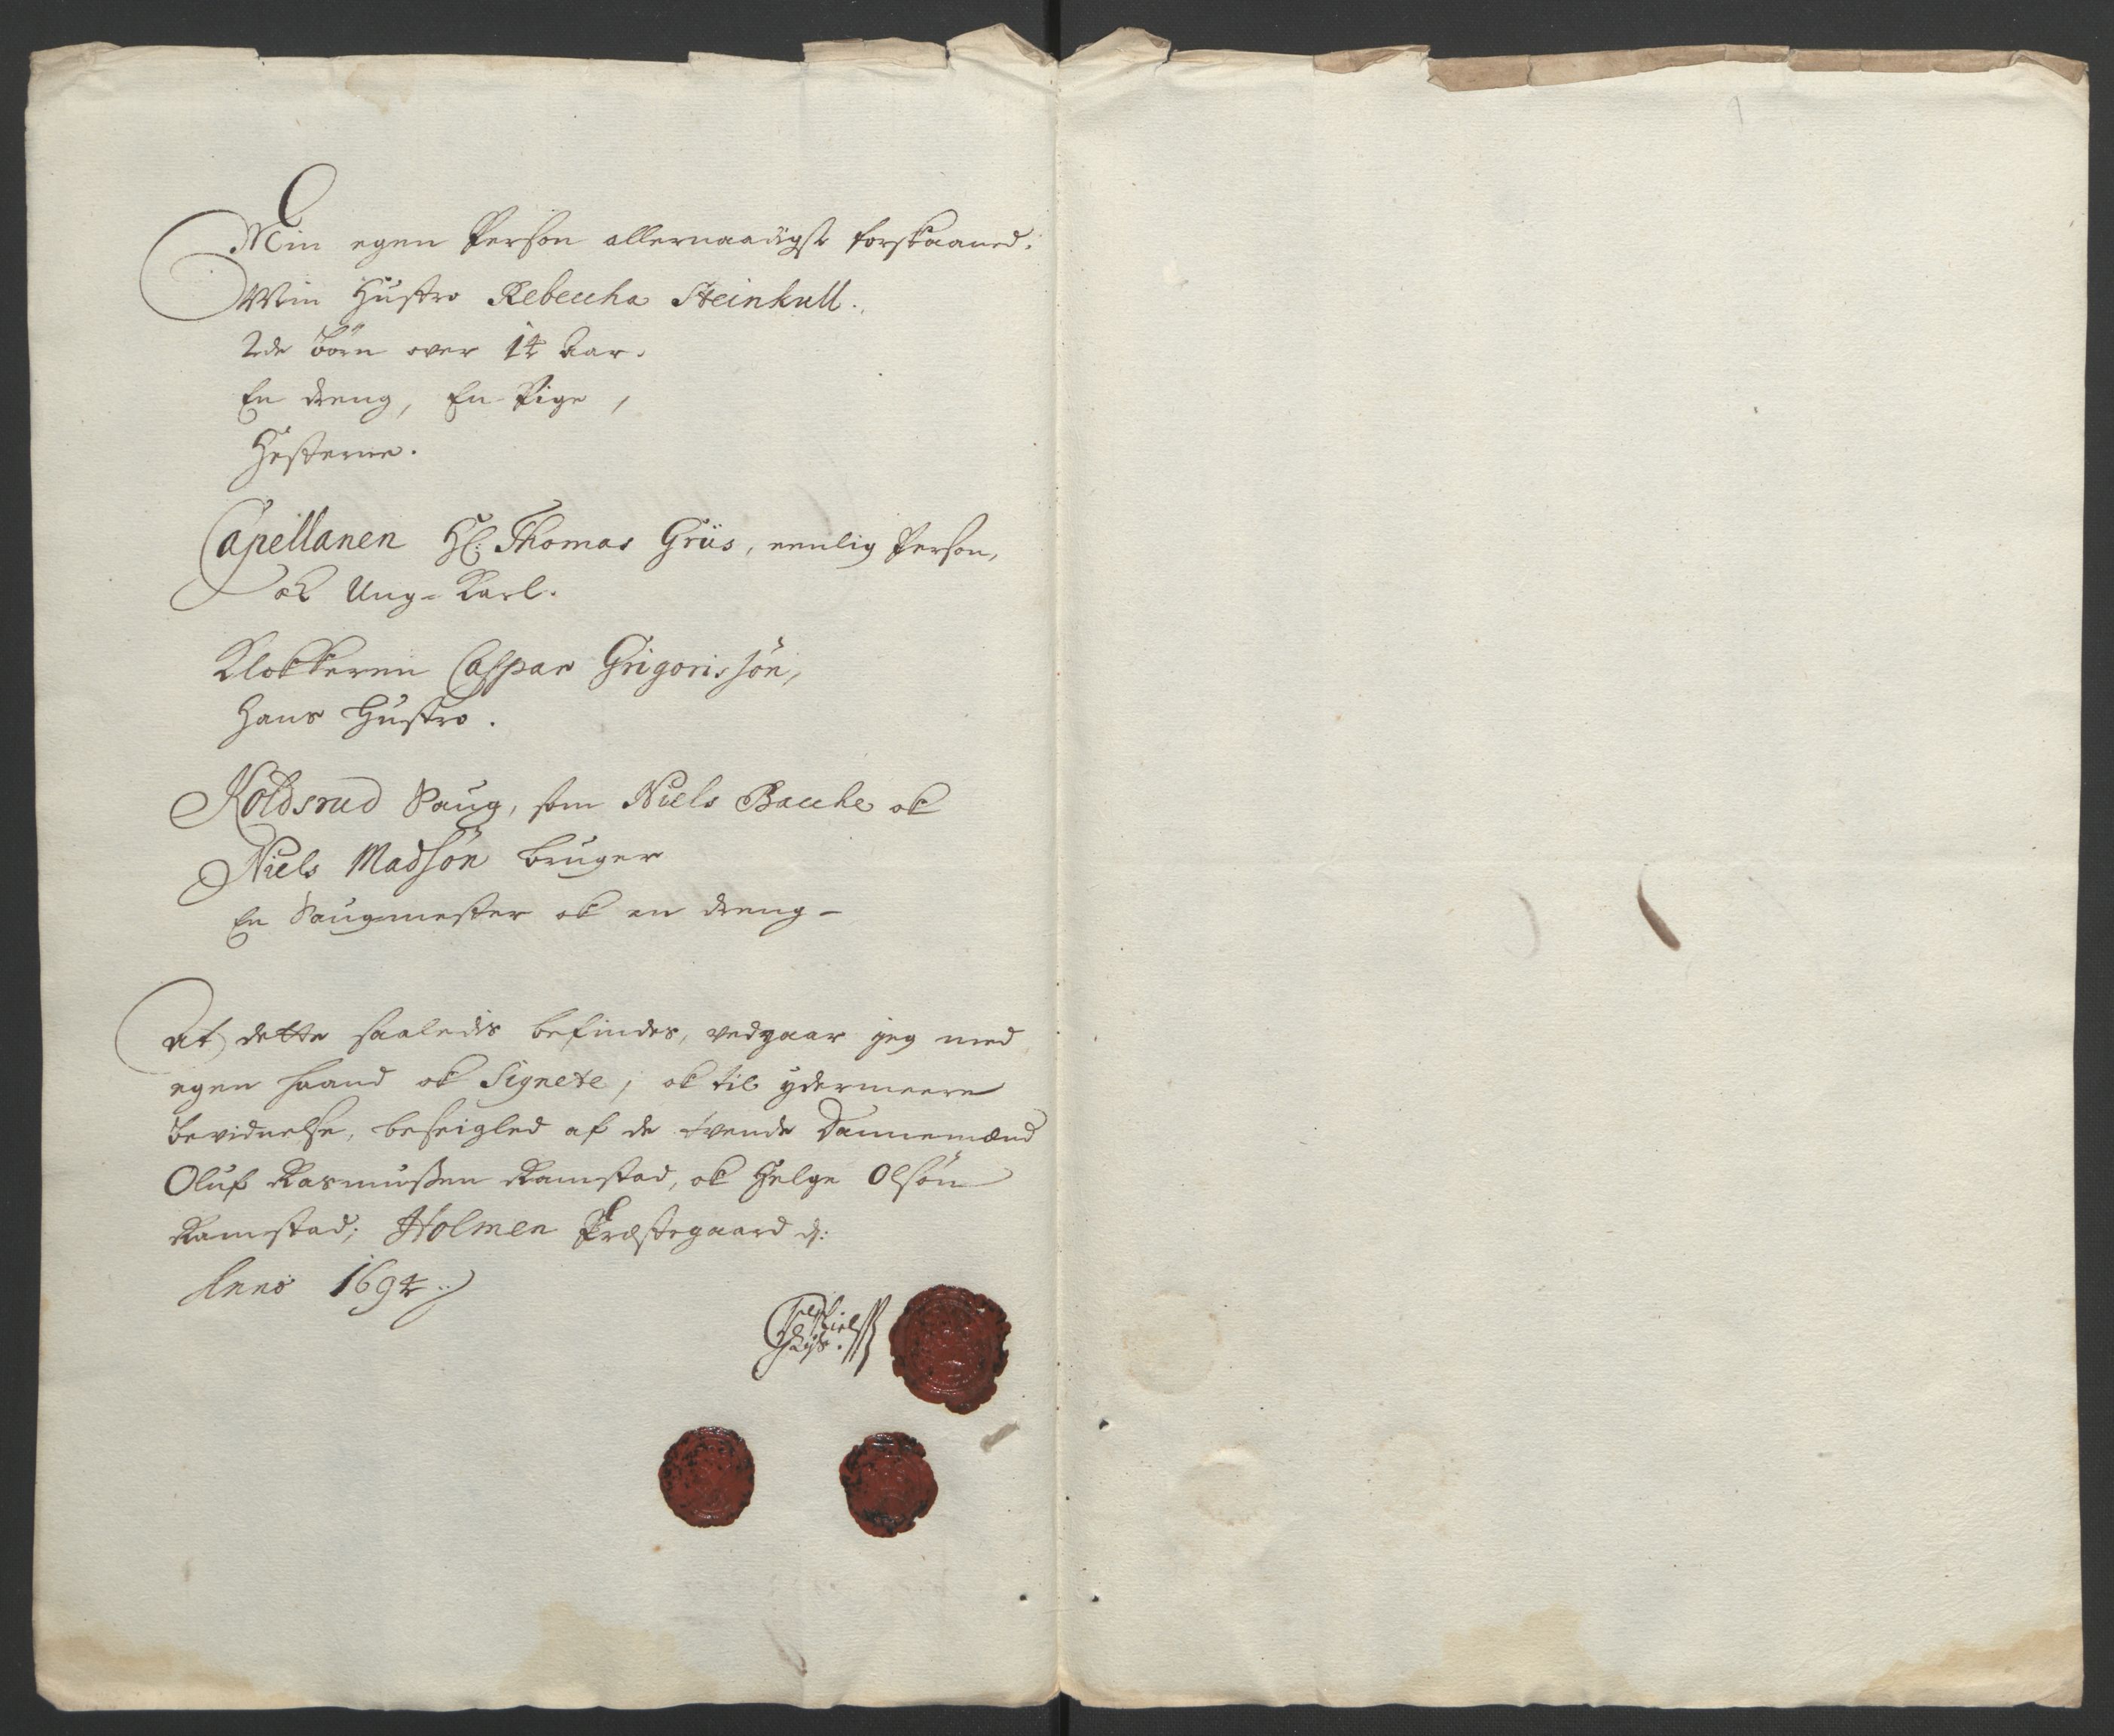 Min egen Person allernaadigst forskaaned.
Min Hustro Rebeccha Steinkull.
2de Børn over 14 Aar.
En dreng, En Pige,
Hesterne.
Capellanen Hl: Thomas Grüs, eenlig Person,
ok Ung-Karl.
Klokkeren Caspar Grigorissøn,
Hans Hustro.
Koldsrud Saug, som Niels Bacche ok
Niels Madsøn bruger
En Saugmester ok en dreng-
At dette saaledis befindes, vedgaar jeg med
egen haand ok Signete, ok til ydermeere
bevidnelse, beseigled af de tvende Dannemænd
Oluf Rasmußen Ramstad, ok Helge Olsøn
Ramstad; Holmen Præstegaard d:
Anno 1694